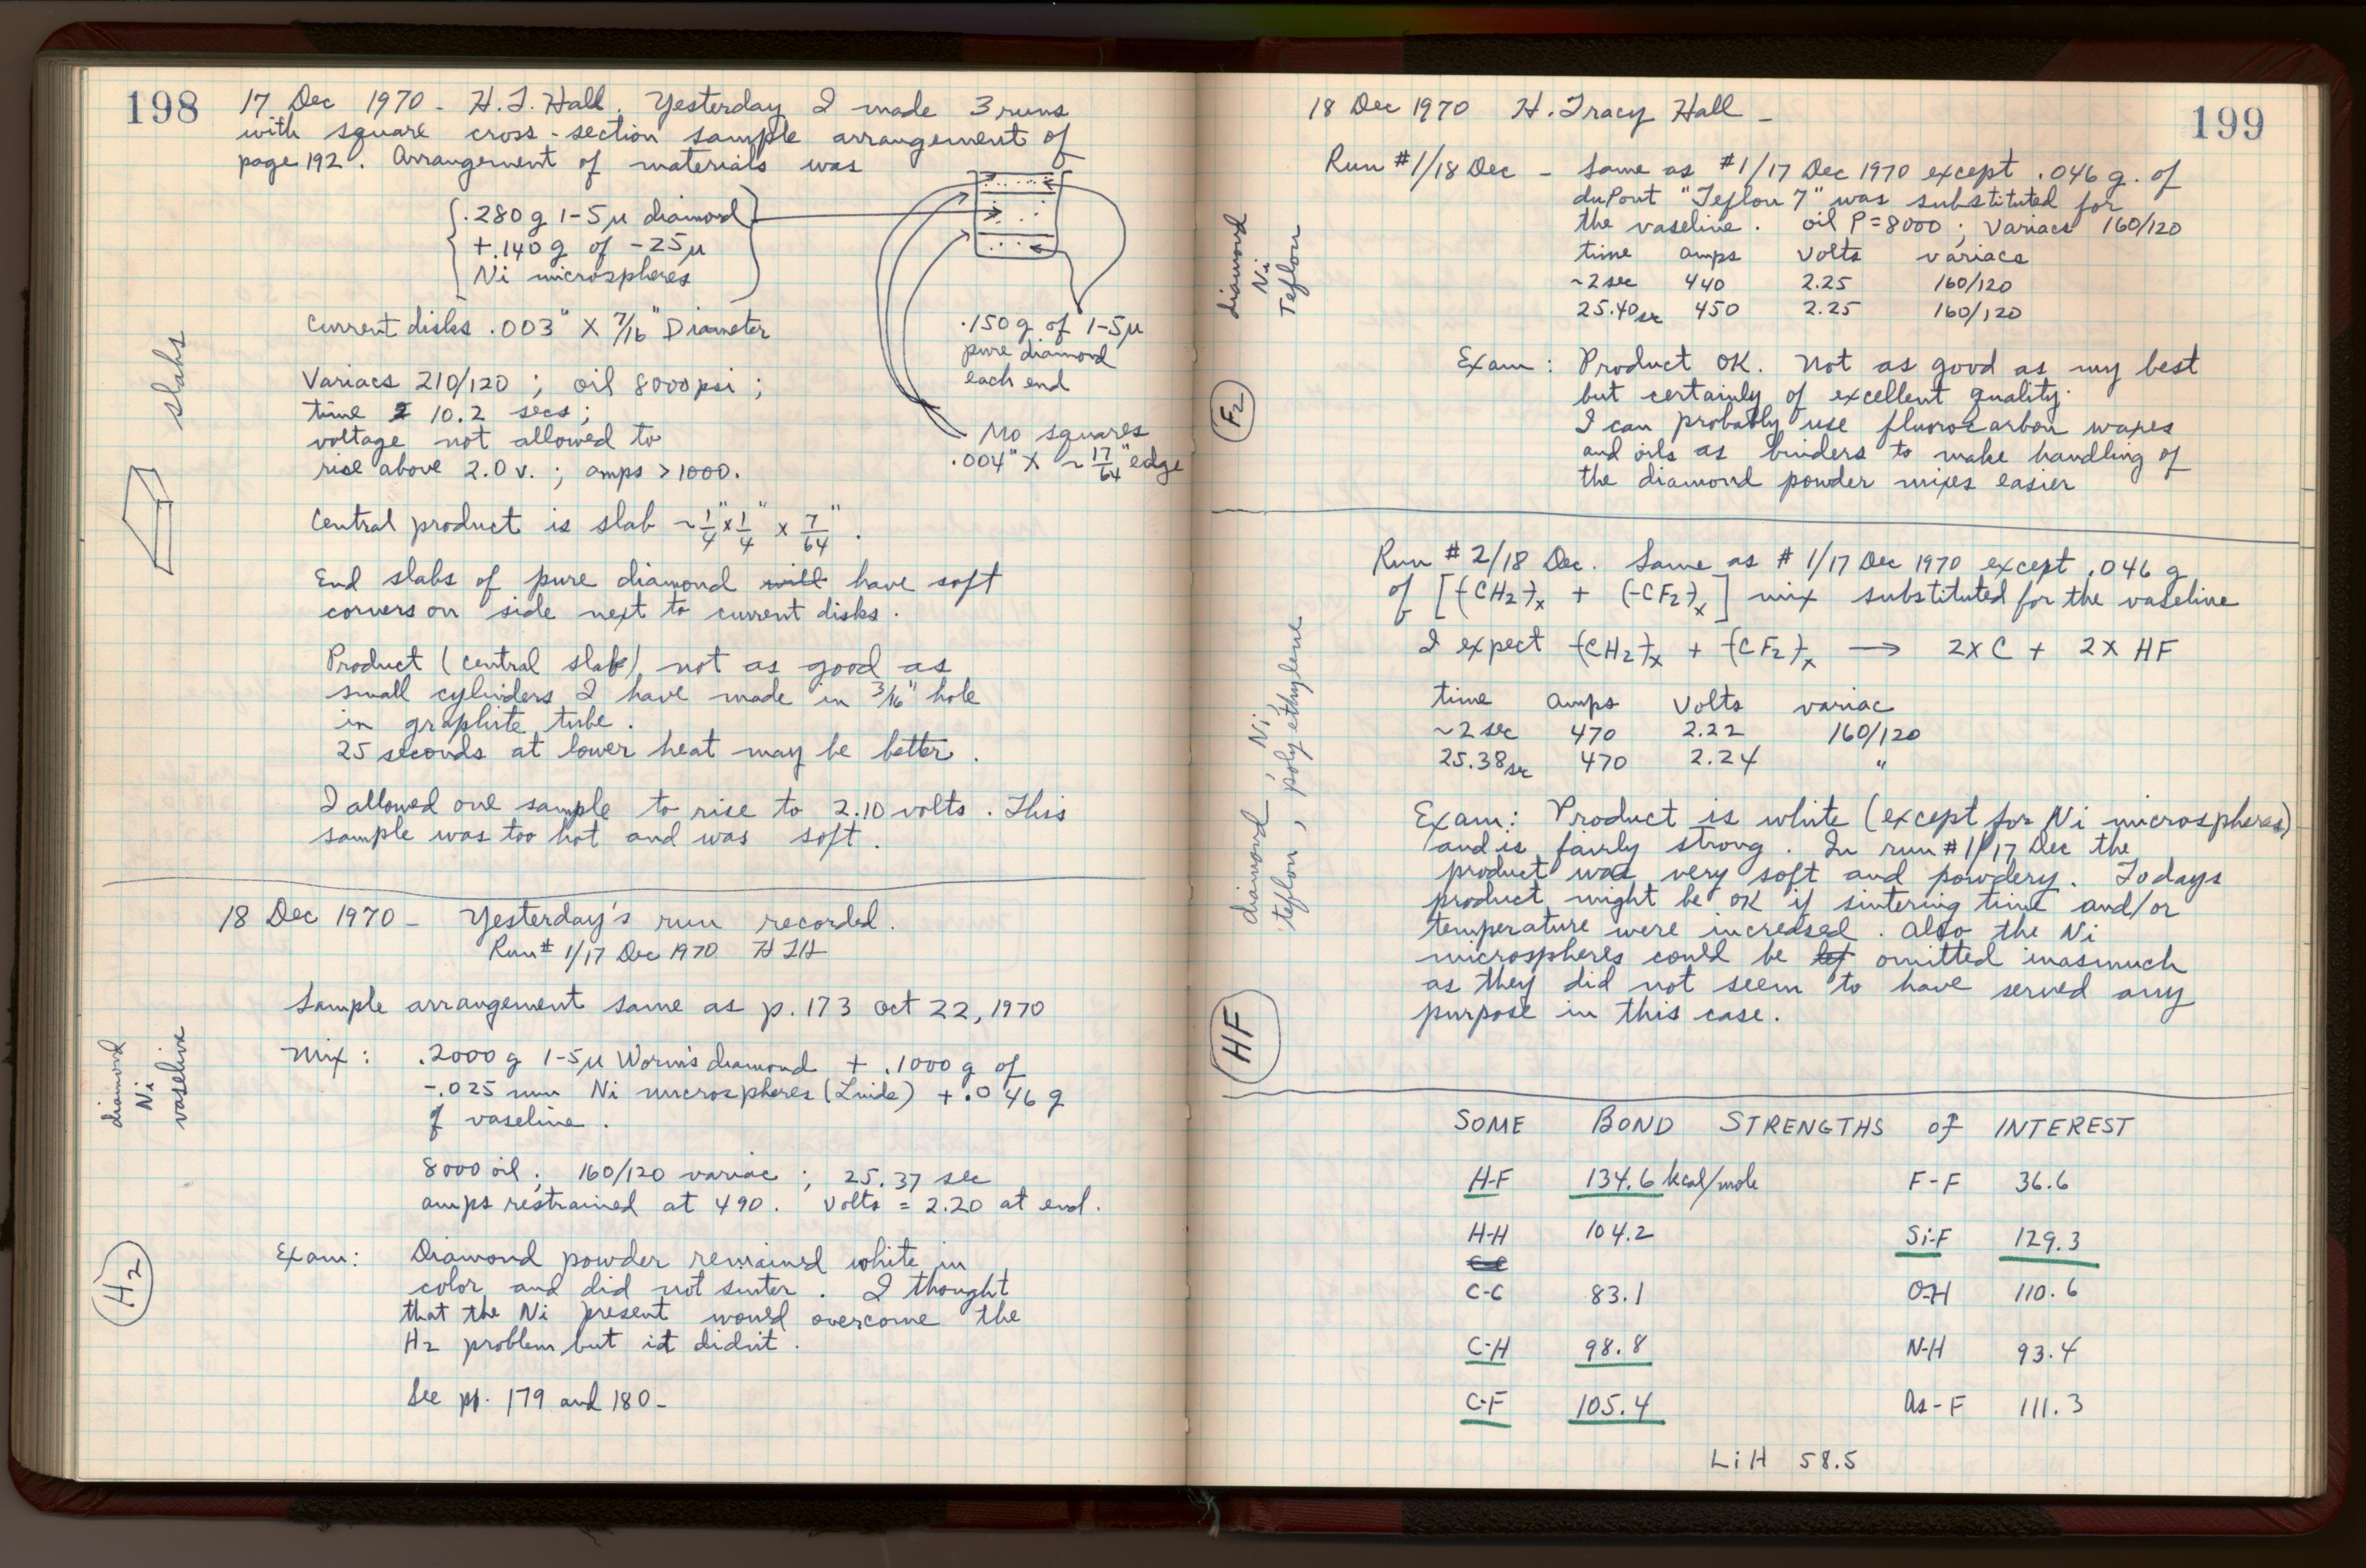 198
17 Dec 1970 - H.T. Hall. Yesterday I made 3 runs
with square cross-section sample arrangement of
page 192. Arrangement of materials was
.280g 1-5µ diamond
+ .140g of -25µ
Ni microspheres
Current disks .003" X 7/16" Diameter
.150g of 1-5µ
pure diamond
each end
slabs
Variacs 210/120 ; oil 8000 psi ;
time 10.2 secs ;
voltage not allowed to
rise above 2.0 v. ; amps > 1000.
Mo squares
.004" X ~ 17/64" edge
Central product is slab ~ 1/4" x 1/4" x 7/64".
End slabs of pure diamond will have soft
corners on side next to current disks.
Product (central slab) not as good as
small cylinders I have made in 3/16" hole
in graphite tube.
25 seconds at lower heat may be better.
I allowed one sample to rise to 2.10 volts. This
sample was too hot and was soft.
18 Dec 1970 - Yesterday's run recorded.
Run # 1/17 Dec 1970 HTH
Sample arrangement same as p. 173 Oct 22, 1970
diamond
Ni
vaseline
Mix : .2000g 1-5µ diamond + .1000g of
-.025 mm Ni microspheres (Linde) + .046g
of vaseline.
8000 oil ; 160/120 variac ; 25.37 sec
amps restrained at 490. Volts = 2.20 at end.
H2
Exam: Diamond powder remained white in
color and did not sinter. I thought
that the Ni present would overcome the
H2 problem but it didn't.
See pp. 179 and 180-
18 Dec 1970 H. Tracy Hall -
199
Run #1/18 Dec - Same as #1/17 Dec 1970 except .046 g. of
duPont "Teflon 7" was substituted for
the vaseline. oil P=8000 ; Variacs 160/120
diamond
Ni
Teflon
time amps Volts variacs
~2 sec 440 2.25 160/120
25.40 sec 450 2.25 160/120
F2
Exam: Product OK. Not as good as my best
but certainly of excellent quality.
I can probably use fluorocarbon waxes
and oils as binders to make handling of
the diamond powder mixes easier
Run # 2/18 Dec. Same as # 1/17 Dec 1970 except .046 g
of [(-CH2-)x + (-CF2-)x] mix substituted for the vaseline
I expect (-CH2-)x + (-CF2-)x → 2x C + 2x HF
diamond, Ni,
teflon, polyethylene
time amps Volts variac
~2 sec 470 2.22 160/120
25.38 sec 470 2.24 "
Exam: Product is white (except for Ni microspheres)
and is fairly strong. In run #1/17 Dec the
product was very soft and powdery. Todays
product might be OK if sintering time and/or
temperature were increased. Also the Ni
microspheres could be omitted inasmuch
as they did not seem to have served any
purpose in this case.
HF
SOME BOND STRENGTHS of INTEREST
H-F 134.6 kcal/mole F-F 36.6
H-H 104.2 Si-F 129.3
C-C 83.1 O-H 110.6
C-H 98.8 N-H 93.4
C-F 105.4 As-F 111.3
LiH 58.5